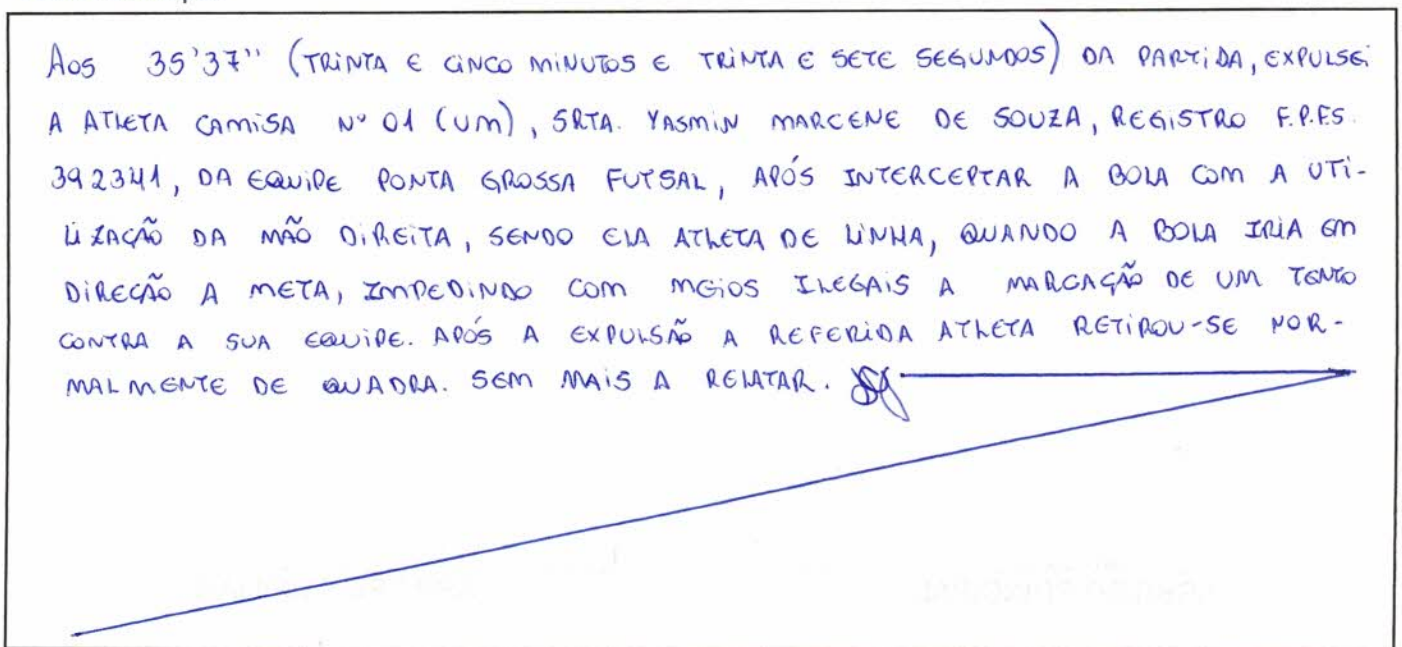 Aos 35'37" (TRINTA E CINCO MINUTOS E TRINTA E SETE SEGUNDOS) DA PARTIDA, EXPULSEI
A ATLETA CAMISA Nº 01 (UM), SRTA. YASMIN MARCENE DE SOUZA, REGISTRO F.P.F.S.
392341, DA EQUIPE PONTA GROSSA FUTSAL, APÓS INTERCEPTAR A BOLA COM A UTI-
LIZAÇÃO DA MÃO DIREITA, SENDO ELA ATLETA DE LINHA, QUANDO A BOLA IRIA EM
DIREÇÃO A META, IMPEDINDO COM MEIOS ILEGAIS A MARCAÇÃO DE UM TENTO
CONTRA A SUA EQUIPE. APÓS A EXPULSÃO A REFERIDA ATLETA RETIROU-SE NOR-
MALMENTE DE QUADRA. SEM MAIS A RELATAR.